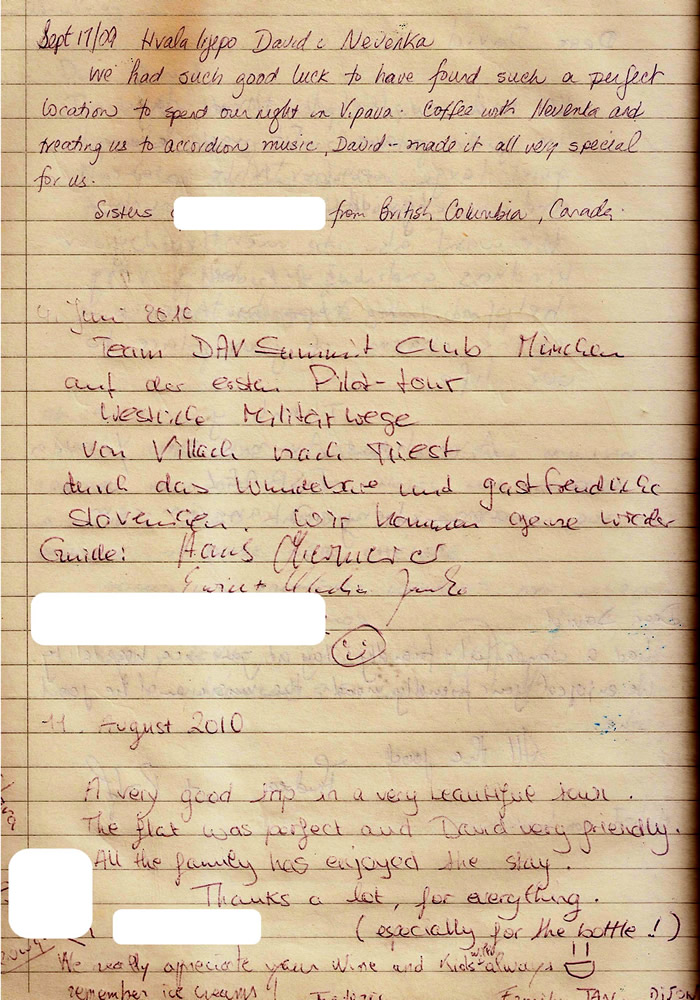 Sept 17/09 Hvala lijepo David i Nevenka
We had such good luck to have found such a perfect
location to spend our night in Vipava. Coffee with Nevenka and
treating us to accordion music, David - made it all very special
for us.
Sisters from British Columbia, Canada.
4. Juni 2010
Team DAV Summit Club München
auf der ersten Pilot-tour
Westliche Militärwege
von Villach nach Triest
durch das wunderbare und gastfreundliche
Slovenien. Wir kommen gerne wieder
Guide: Hans
11. August 2010
A very good trip in a very beautiful town.
The flat was perfect and David very friendly.
All the family has enjoyed the stay.
Thanks a lot, for everything.
(especially for the bottle!)
We really apreciate your wine and Kids will always
remember ice creams!